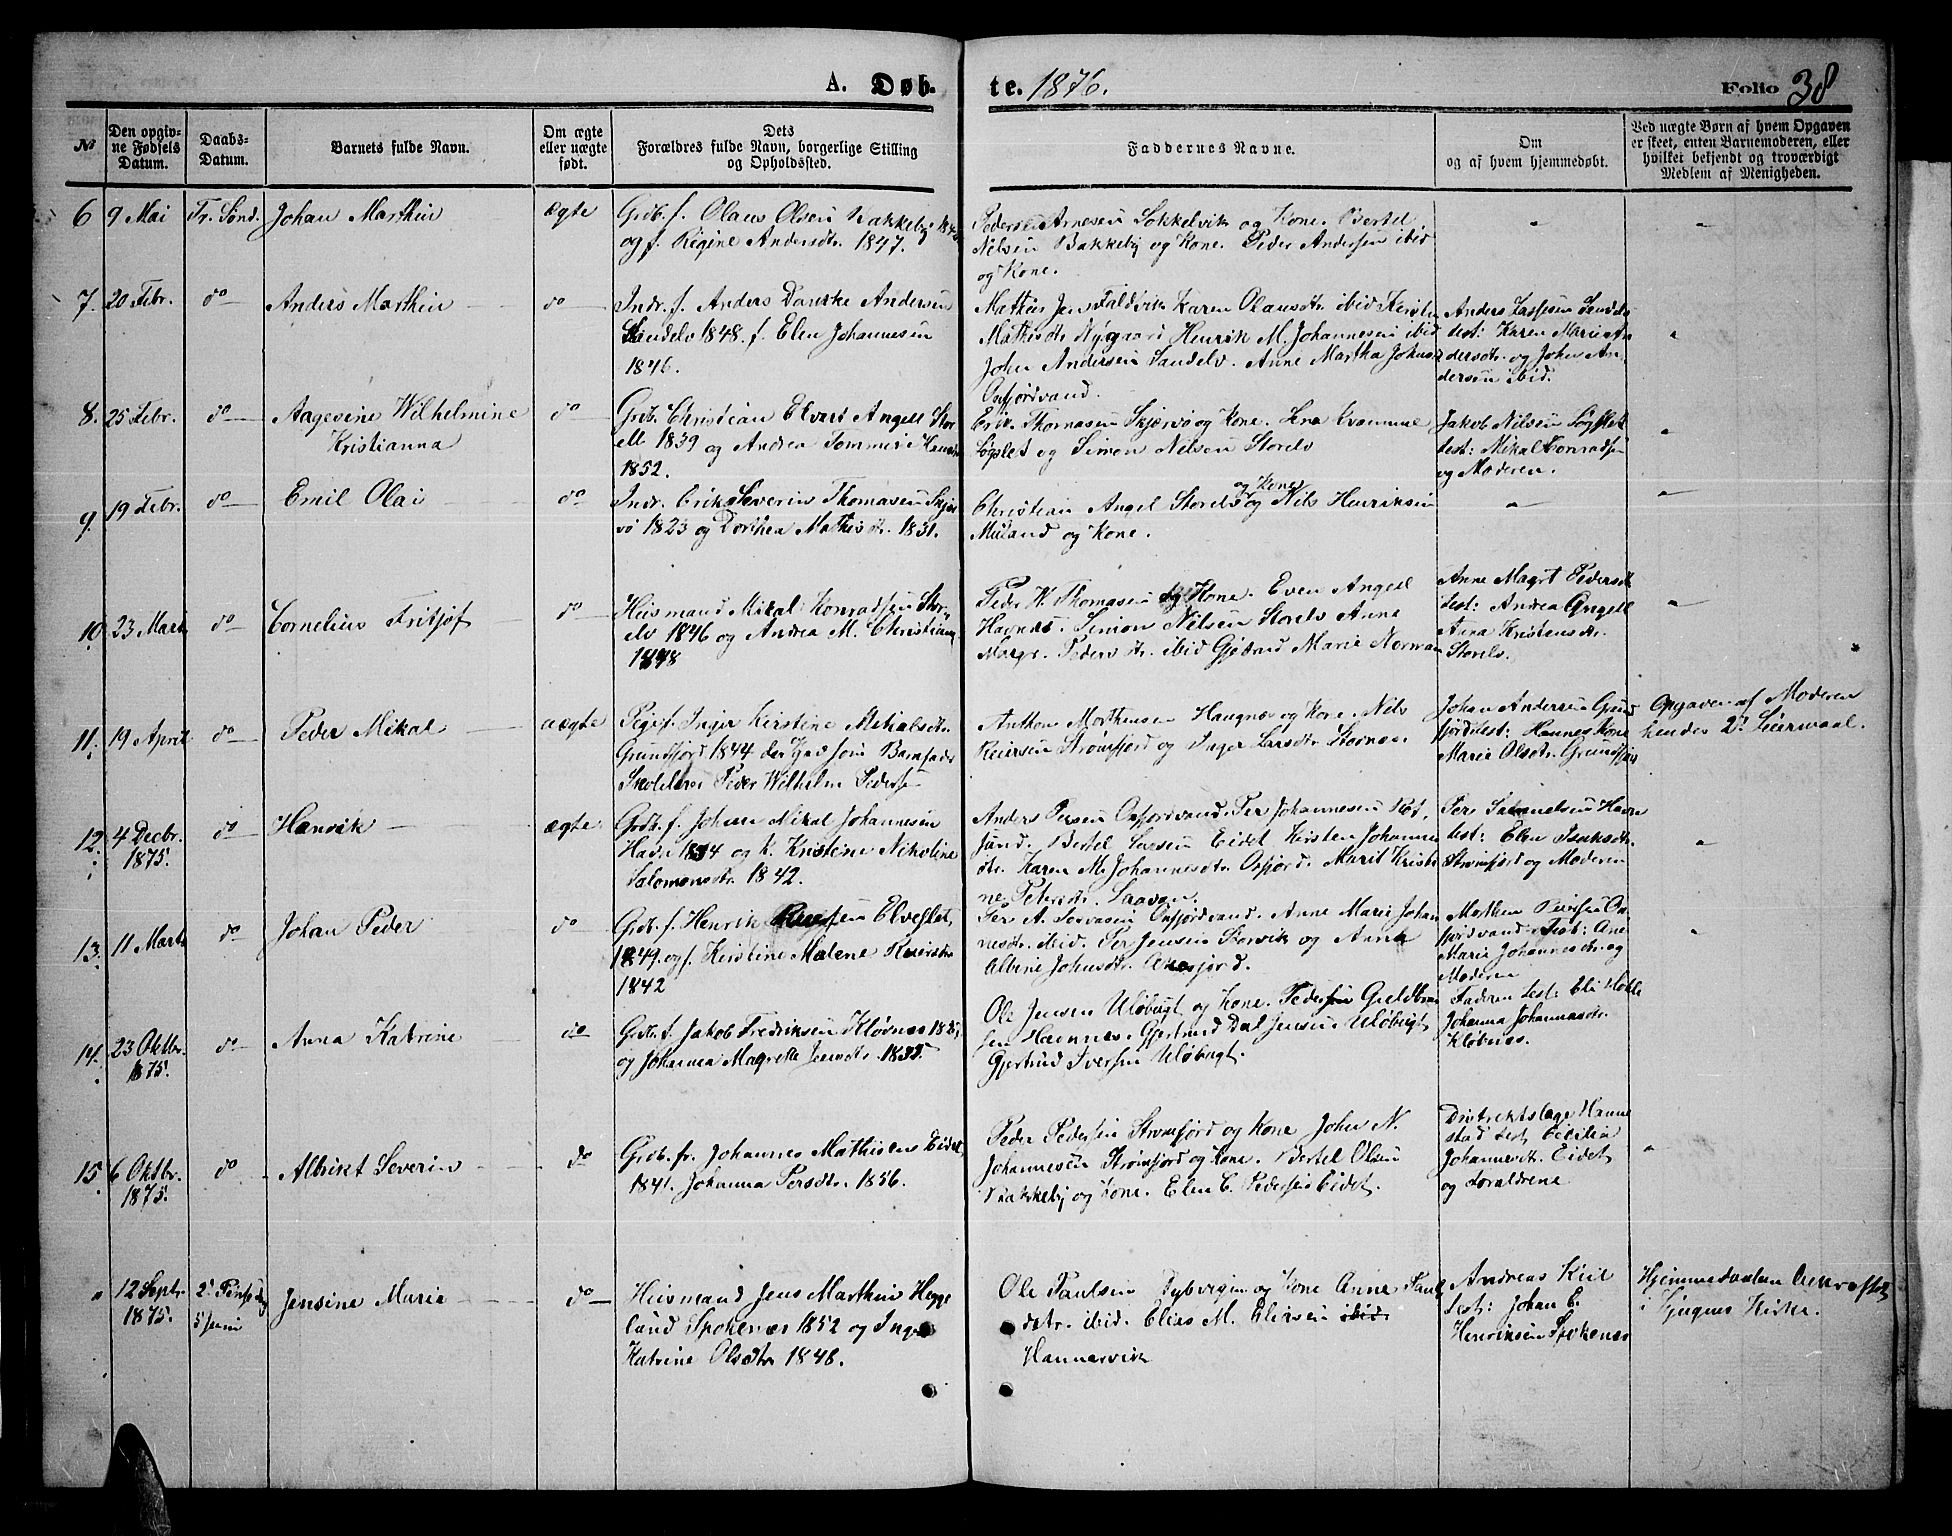 A. Døb-
te. 1876.
Folio 38
№
Den opgiv-
ne Fødsels
Datum.
Daabs-
Datum.
Barnets fulde Navn.
Om ægte
eller uægte
født.
Dets
Forældres fulde Navn, borgerlige Stilling
og Opholdssted.
Faddernes Navne.
Om
og af hvem hjemmedøbt.
Ved uægte Børn af hvem Opgaven
er skeet, enten Barnemoderen, eller
hvilket bekjendt og troværdigt
Medlem af Menigheden.
6
9 Mai
Tr. Sønd.
Johan Marthin
ægte
Grdb. f. Olaus Olsen Bakkeby
og f. Regine Andersdtr. 1847.
Arnesen Sokkelvik og Kone. Bertel
Nilsen Bakkeby og Kone. Peder Andersen ibid
og Kone.
7.
20 Febr.
do
Anders Marthin
do
Indr. f. Anders Danske Andersen
Sandelv 1848. f. Elen Johannesen
1846.
Mathis Jens Faldvik Karen Olausdtr. ibid
Mathisdtr. Nygaard Henrik M. Johannesen ibid
John Andersen Sandelv. Anne Martha Johns
Oxfjordvand.
Anders Lassesen
test: Karen Marie An
dersdtr. og John An
dersen ibid.
8.
25 Febr.
do
Aagevine Wilhelmine
Kristianna
do
Grdb. Christian Ekvart Angell Stor
elv 1839 og Andrea Tommine
1852.
Erik Thomasen Skjærvø og Kone.
Søgslet og Simon Nilsen Storelv
Jakob Nilsen Søgslet
test: Mikal Conradsen
og Moderen.
9.
19 Febr.
do
Emil Olai
do
Indr. Erik Severin Thomasen Skjær
vø 1823 og Dorthea Mathisdtr. 1831.
Christian Angel Storelv og Kone og Nils Henriksen
og Kone.
10.
23 Marts
do
Cornelius Fritjof
do
Huusmand Mikal Konradsen Stor
elv 1846 og Andrea M. Christians
1848
Peder W. Thomasen og Kone. Even Angell
Havnes. Simon Nilsen Storelv Anne
Margr. Pedersdtr. ibid Marie Norman
Anne Magrt Pedersdtr.
test: Andrea Angell
Anna Kristensdtr.
Storelv.
11.
19 April
do
Peder Mikal
uægte
Pige f. Inger Kirstine Mikalsdtr.
Grundfjord 1844 Barnfader
Skolelærer Peder Wilhelm Peders
Anthon Morthensen Haugnes og Kone. Nils
Reiersen Strømfjord og Inger Larsdtr.
Johan Andersen Grund
fjord test: Hannes Kone
Marie Olsdtr. Grundfjord
Opgaven af Moderen
hendes 2det Leiermaal.
12.
4 Decbr.
1875.
do
Henrik
ægte
Grdb. f. Johan Mikal Johannesen
Havn 1834 og K. Kristine Nikoline
Salomonsdtr. 1842.
Anders Persen Oxfjordvand. Per Johannesen Rot
sund. Bertel Larsen Eidet Kirsten Johannes
dtr. Karen M. Johannesdtr. Oxfjord. Marit Kristi
ne Petersdtr.
Per Samuelsen Havn
test: Elen Isaksdtr.
Strømfjord og Moderen
13.
11 Marts
do
Johan Peder
do
Grdb. f. Henrik Elveslet,
1849. og f. Kirstine Malene Reiersdtr.
1842
Per A. Oxfjordvand. Anne Marie Johan
nesdtr. ibid. Per Jensen Storvik og Anna
Albine Johnsdtr.
Morthen Ox
fjordvand Test: Ane
Marie Johannesdtr. og
Moderen
14.
23 Oktbr.
1875.
do
Anna Katrine
do
Grdb. f. Jakob Fredriksen Kløvnes
og Johanna Magrethe Jensdtr.
Ole Jensen Uløbugt og Kone. Pedersen
Havnnes. Gjertrud Dal Jensen Uløbugt
Gjertrud Iversen Uløbugt.
Faderen test:
Johanna Johannesdtr.
Kløvnes.
15.
6 Oktbr.
1875.
do
Albrikt Severin
do
Grdb. fr. Johannes Mathisen Eidet
1841. Johanna Persdtr. 1856.
Peder Pedersen Strømfjord og Kone John N.
Johannesen Strømfjord og Kone. Bertel Olsen
Bakkeby og Kone. Elen C. Pedersen Eidet.
Distriktslæge
stad test Cicilia
Johannesdtr. Eidet
og Forældrene
12 Septr.
1875.
2. Pintsedag
5 Juni
Jensine Marie
do
Huusmand Jens Marthin Hegge
lund Spokenæs 1852 og Inger
Katrine Olsdtr 1848.
Ole Paulsen Dybvigen og Kone Anne Pauls
datr. ibid. Elias M. Eliesen ibid.
Havnnesvik
Andreas Kiil
test: Johan E.
Henriksen Spokenæs
Hjemmedaaben
i Lyngens Kirke.